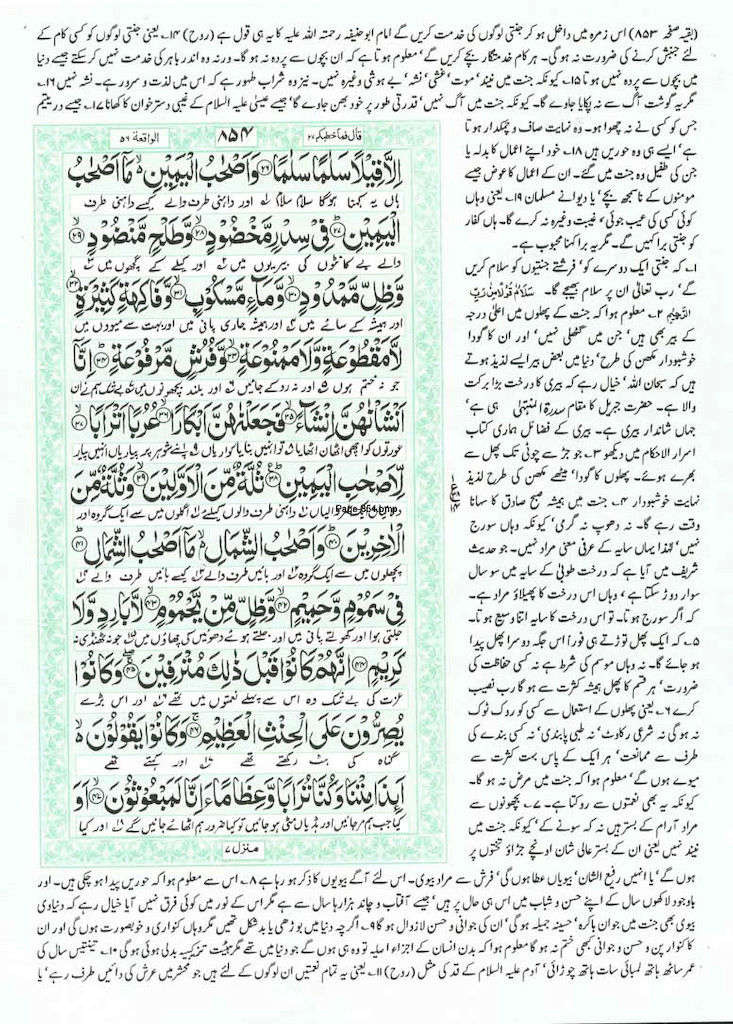 (بقیہ صفحہ ۸۵۳) اس زمرہ میں داخل ہو کر جنتی لوگوں کی خدمت کریں گے امام ابو حنیفہ رحمتہ اللہ علیہ کا یہ ہی قول ہے (روح) ۱۴۔ یعنی جنتی لوگوں کو کسی کام کے
لئے جنبش کرنے کی ضرورت نہ ہوگی۔ ہر کام خدمتگار بچے کریں گے' معلوم ہوتا ہے کہ ان بچوں سے پردہ نہ ہو گا۔ ورنہ وہ اندر باہر کی خدمت نہ کر سکتے جیسے دنیا
میں بچوں سے پردہ نہیں ہوتا ۱۵۔ کیونکہ جنت میں نیند' موت' غشی' نشہ' بے ہوشی وغیرہ نہیں۔ نیز وہ شراب طہور ہے کہ اس میں لذت و سرور ہے۔ نشہ نہیں ۱۶۔
مگر یہ گوشت آگ سے نہ پکایا جاوے گا۔ کیونکہ جنت میں آگ نہیں' قدرتی طور پر خود بھن جاوے گا' جیسے عیسیٰ علیہ السلام کے غیبی دسترخوان کا کھانا ۱۷۔ جیسے در یتیم
جس کو کسی نے نہ چھوا ہو۔ وہ نہایت صاف و چمکدار ہوتا
ہے' ایسے ہی وہ حوریں ہیں ۱۸۔ خود اپنے اعمال کا بدلہ یا
جن کی طفیل وہ جنت میں گئے۔ ان کے اعمال کا عوض جیسے
مومنوں کے ناسمجھ بچے' یا دیوانے مسلمان ۱۹۔ یعنی وہاں
کوئی کسی کی عیب جوئی' غیبت وغیرہ نہ کرے گا۔ ہاں کفار
کو جنتی برا کہیں گے۔ مگر یہ برا کہنا محبوب ہے۔
۱۔ کہ جنتی ایک دوسرے کو' فرشتے جنتیوں کو سلام کریں
گے' رب تعالیٰ ان پر سلام بھیجے گا۔ سَلٰمٌ قَوْلًا مِّنْ رَّبٍّ
الرَّحِیْمِ ۲۔ معلوم ہوا کہ جنت کے پھلوں میں اعلیٰ درجہ
کے بیر بھی ہیں' جن میں گٹھلی نہیں' اور ان کا گودا
خوشبودار مکھن کی طرح' دنیا میں بعض بیر ایسے لذیذ ہوتے
ہیں کہ سبحان اللہ' خیال رہے کہ بیری کا درخت بڑا برکت
والا ہے۔ حضرت جبریل کا مقام سدرۃ المنتہیٰ ہی ہے'
جہاں شاندار بیری ہے۔ بیری کے فضائل ہماری کتاب
اسرار الاحکام میں دیکھو ۳۔ جو جڑ سے چوٹی تک پھل سے
بھرے ہوئے۔ پھلوں کا گودا' میٹھے مکھن کی طرح لذیذ
نہایت خوشبودار ۴۔ جنت میں ہمیشہ صبح صادق کا سہانا
وقت رہے گا۔ نہ دھوپ نہ گرمی' کیونکہ وہاں سورج
نہیں' لہٰذا یہاں سایہ کے عرفی معنی مراد نہیں۔ جو حدیث
شریف میں آیا ہے کہ درخت طوبیٰ کے سایہ میں سو سال
سوار دوڑ سکتا ہے' وہاں اس درخت کا پھیلاؤ مراد ہے۔
کہ اگر سورج ہوتا۔ تو اس درخت کا سایہ اتنا وسیع ہوتا۔
۵۔ کہ ایک پھل توڑتے ہی فوراً اس جگہ دوسرا پھل پیدا
ہو جائے گا۔ نہ وہاں موسم کی شرط ہے نہ کسی حفاظت کی
ضرورت' ہر قسم کا پھل ہمیشہ کثرت سے ہو گا رب نصیب
کرے ۶۔ یعنی پھلوں کے استعمال سے کسی کو روک ٹوک
نہ ہوگی نہ شرعی رکاوٹ' نہ طبی پابندی' نہ کسی بندے کی
طرف سے ممانعت' ہر ایک کے پاس بہت کثرت سے
میوے ہوں گے' معلوم ہوا کہ جنت میں مرض نہ ہو گا۔
کیونکہ یہ بھی نعمتوں سے روکتا ہے۔ ۷۔ بچھونوں سے
مراد آرام کے بستر ہیں نہ کہ سونے کے' کیونکہ جنت میں
نیند نہیں یعنی ان کے بستر عالی شان اونچے جڑاؤ تختوں پر
قال فما خطبکم ۲۷ ۸۵۴ الواقعة ۵۶
اِلَّا قِیْلًا سَلٰمًا سَلٰمًا ﴿۲۶﴾ وَاَصْحٰبُ الْیَمِیْنِ ۙ مَاۤ اَصْحٰبُ
ہاں یہ کہنا ہوگا سلام سلام اور داہنی طرف والے کیسے داہنی طرف
الْیَمِیْنِ ﴿۲۷﴾ فِیْ سِدْرٍ مَّخْضُوْدٍ ﴿۲۸﴾ وَّطَلْحٍ مَّنْضُوْدٍ ﴿۲۹﴾
والے بے کانٹوں کی بیریوں میں اور کیلے کے گچھوں میں
وَّظِلٍّ مَّمْدُوْدٍ ﴿۳۰﴾ وَّمَآءٍ مَّسْکُوْبٍ ﴿۳۱﴾ وَّفَاکِهَةٍ کَثِیْرَةٍ ﴿۳۲﴾
اور ہمیشہ کے سائے میں اور ہمیشہ جاری پانی میں اور بہت سے میووں میں
لَّا مَقْطُوْعَةٍ وَّلَا مَمْنُوْعَةٍ ﴿۳۳﴾ وَّفُرُشٍ مَّرْفُوْعَةٍ ﴿۳۴﴾ اِنَّاۤ
جو نہ ختم ہوں اور نہ روکے جائیں اور بلند بچھونوں میں بے شک ہم نے ان
اَنْشَاْنٰهُنَّ اِنْشَآءً ﴿۳۵﴾ فَجَعَلْنٰهُنَّ اَبْکَارًا ﴿۳۶﴾ عُرُبًا اَتْرَابًا ﴿۳۷﴾
عورتوں کو اچھی اٹھان اٹھایا تو انہیں بنایا کنواریاں اپنے شوہر پر پیاریاں انہیں پیار
لِّاَصْحٰبِ الْیَمِیْنِ ﴿۳۸﴾ ثُلَّةٌ مِّنَ الْاَوَّلِیْنَ ﴿۳۹﴾ وَثُلَّةٌ مِّنَ
والیاں داہنی طرف والوں کیلئے اگلوں میں سے ایک گروہ اور
Page 854.bmp
الْاٰخِرِیْنَ ﴿۴۰﴾ وَاَصْحٰبُ الشِّمَالِ ۙ مَاۤ اَصْحٰبُ الشِّمَالِ ﴿۴۱﴾
پچھلوں میں سے ایک گروہ اور بائیں طرف والے کیسے بائیں طرف والے
فِیْ سَمُوْمٍ وَّحَمِیْمٍ ﴿۴۲﴾ وَّظِلٍّ مِّنْ یَّحْمُوْمٍ ﴿۴۳﴾ لَّا بَارِدٍ وَّلَا
جلتی ہوا اور کھولتے پانی میں اور جلتے ہوئے دھوئیں کی چھاؤں میں جو نہ ٹھنڈی نہ
کَرِیْمٍ ﴿۴۴﴾ اِنَّهُمْ کَانُوْا قَبْلَ ذٰلِکَ مُتْرَفِیْنَ ﴿۴۵﴾ وَکَانُوْا
عزت کی بے شک وہ اس سے پہلے نعمتوں میں تھے اور اس بڑے
یُصِرُّوْنَ عَلَی الْحِنْثِ الْعَظِیْمِ ﴿۴۶﴾ وَکَانُوْا یَقُوْلُوْنَ ۙ
گناہ کی ہٹ رکھتے تھے اور کہتے تھے
اَئِذَا مِتْنَا وَکُنَّا تُرَابًا وَّعِظَامًا ءَاِنَّا لَمَبْعُوْثُوْنَ ﴿۴۷﴾ اَوَ
کیا جب ہم مر جائیں اور ہڈیاں مٹی ہو جائیں تو کیا ضرور ہم اٹھائے جائیں گے اور کیا
منزل ۷
ہوں گے' یا انہیں رفیع الشان' بیویاں عطا ہوں گی' فرش سے مراد بیوی۔ اس لئے آگے بیویوں کا ذکر ہو رہا ہے ۸۔ اس سے معلوم ہوا کہ حوریں پیدا ہو چکی ہیں۔ اور
باوجود لاکھوں سال کے اپنے حسن و شباب میں اس ہی حال پر ہیں' جیسے آفتاب و چاند ہزار ہا سال سے ہے مگر اس کے نور میں کوئی فرق نہیں آیا خیال رہے کہ دنیاوی
بیوی بھی جنت میں جوان باکرہ' حسینہ جمیلہ ہو گی' ان کی جوانی و حسن لازوال ہو گا ۹۔ اگرچہ دنیا میں بوڑھی یا بدشکل تھیں مگر وہاں کنواری و خوبصورت ہوں گی اور ان
کا کنوار پن و حسن و جوانی کبھی ختم نہ ہو گا معلوم ہوا کہ بدن انسان کے اجزاء اصلیہ تو وہ ہی ہوں گے جو دنیا میں تھے مگر ہیئت ترکیبیہ بدلی ہوئی ہو گی ۱۰۔ تینتیس سال کی
عمر ساٹھ ہاتھ لمبائی سات ہاتھ چوڑائی' آدم علیہ السلام کے قد کی مثل (روح) ۱۱۔ یعنی یہ تمام نعمتیں ان لوگوں کے لئے ہیں جو محشر میں عرش کی دائیں طرف رہے' یا